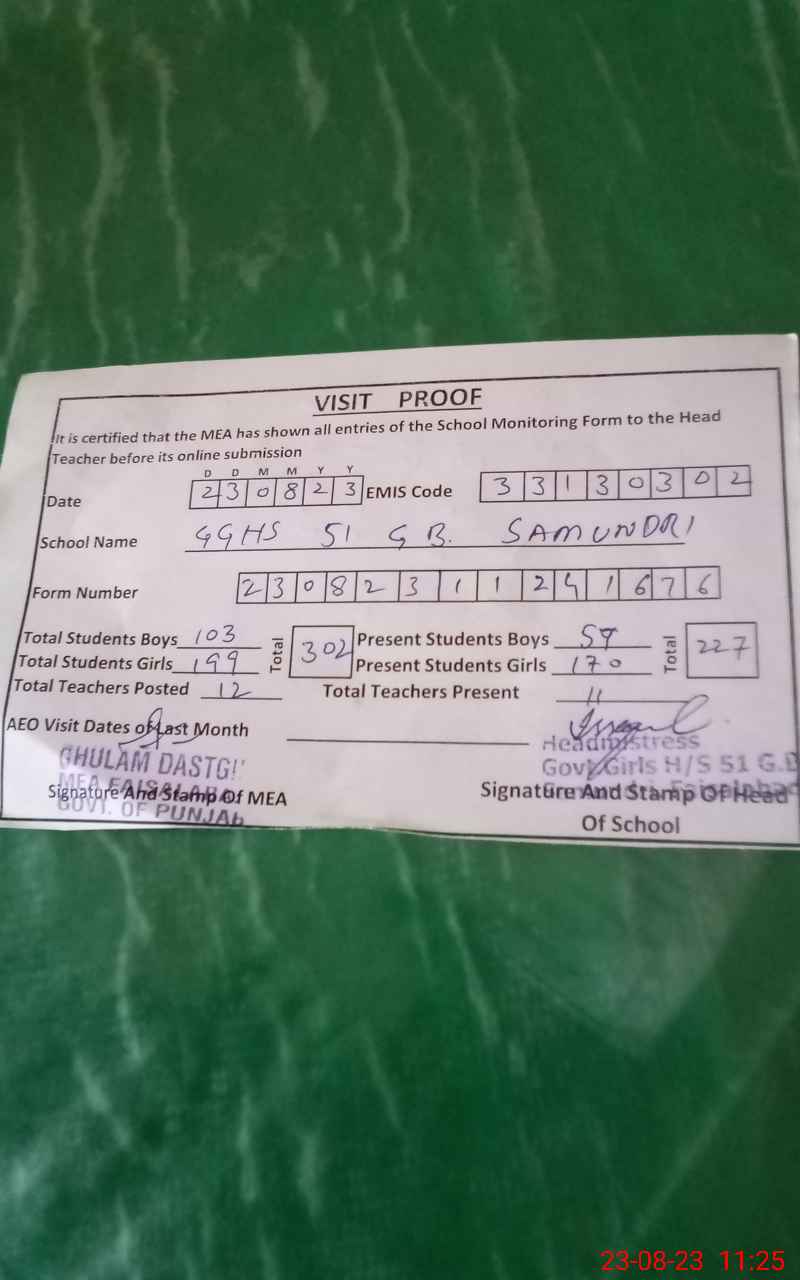 VISIT PROOF
It is certified that the MEA has shown all entries of the School Monitoring Form to the Head
Teacher before its online submission
D D M M Y Y
Date 2 3 0 8 2 3 EMIS Code 3 3 1 3 0 3 0 2
School Name GGHS 51 GB. SAMUNDRI
Form Number 2 3 0 8 2 3 1 1 2 4 1 6 7 6
Total Students Boys 103 Total 302 Present Students Boys 57 Total 227
Total Students Girls 199 Present Students Girls 170
Total Teachers Posted 12 Total Teachers Present 11
AEO Visit Dates of Last Month
GHULAM DASTGI
Headmistress
MEA FAISALABA
Govt Girls H/S 51 G.B
Signature And Stamp Of MEA Signature And Stamp Of Head
GOVT. OF PUNJAb
Of School
23-08-23 11:25